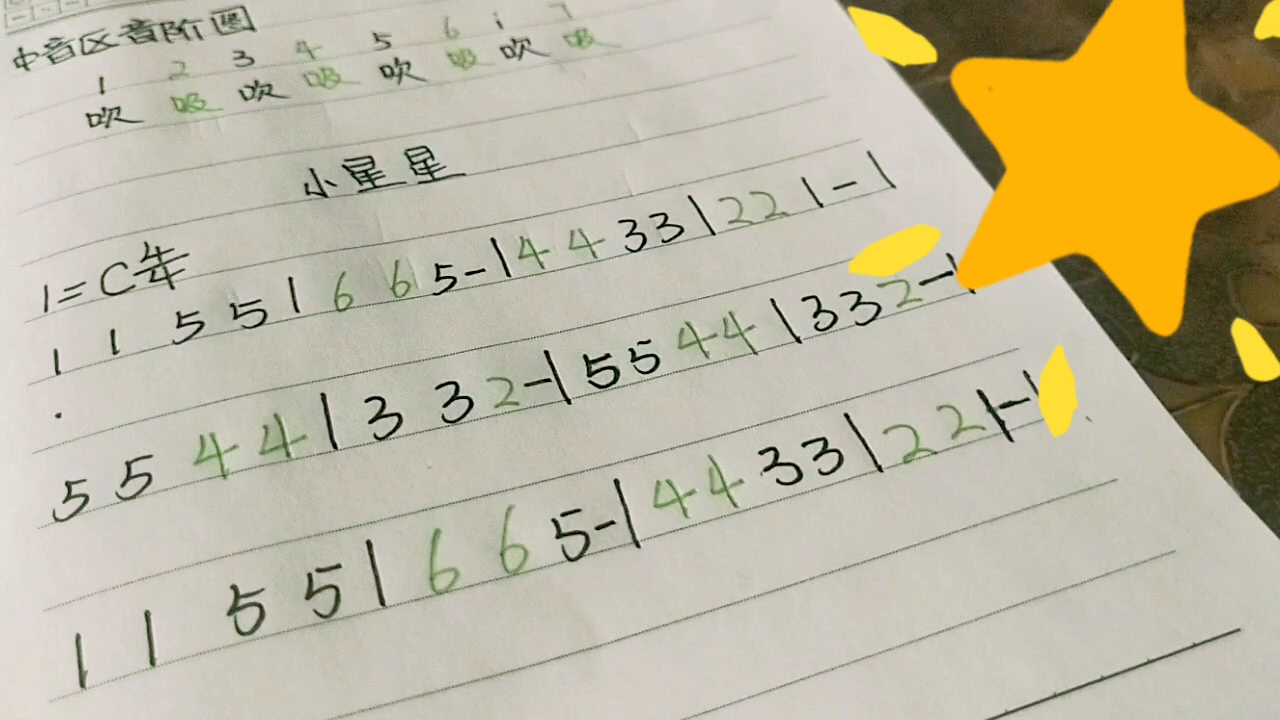 中音区音阶图
1 2 3 4 5 6 i 7
吹 吸 吹 吸 吹 吸 吹 吸
小星星
1=C 4/4
1 1 5 5 | 6 6 5 - | 4 4 3 3 | 2 2 1 - |
5 5 4 4 | 3 3 2 - | 5 5 4 4 | 3 3 2 - |
1 1 5 5 | 6 6 5 - | 4 4 3 3 | 2 2 1 - |